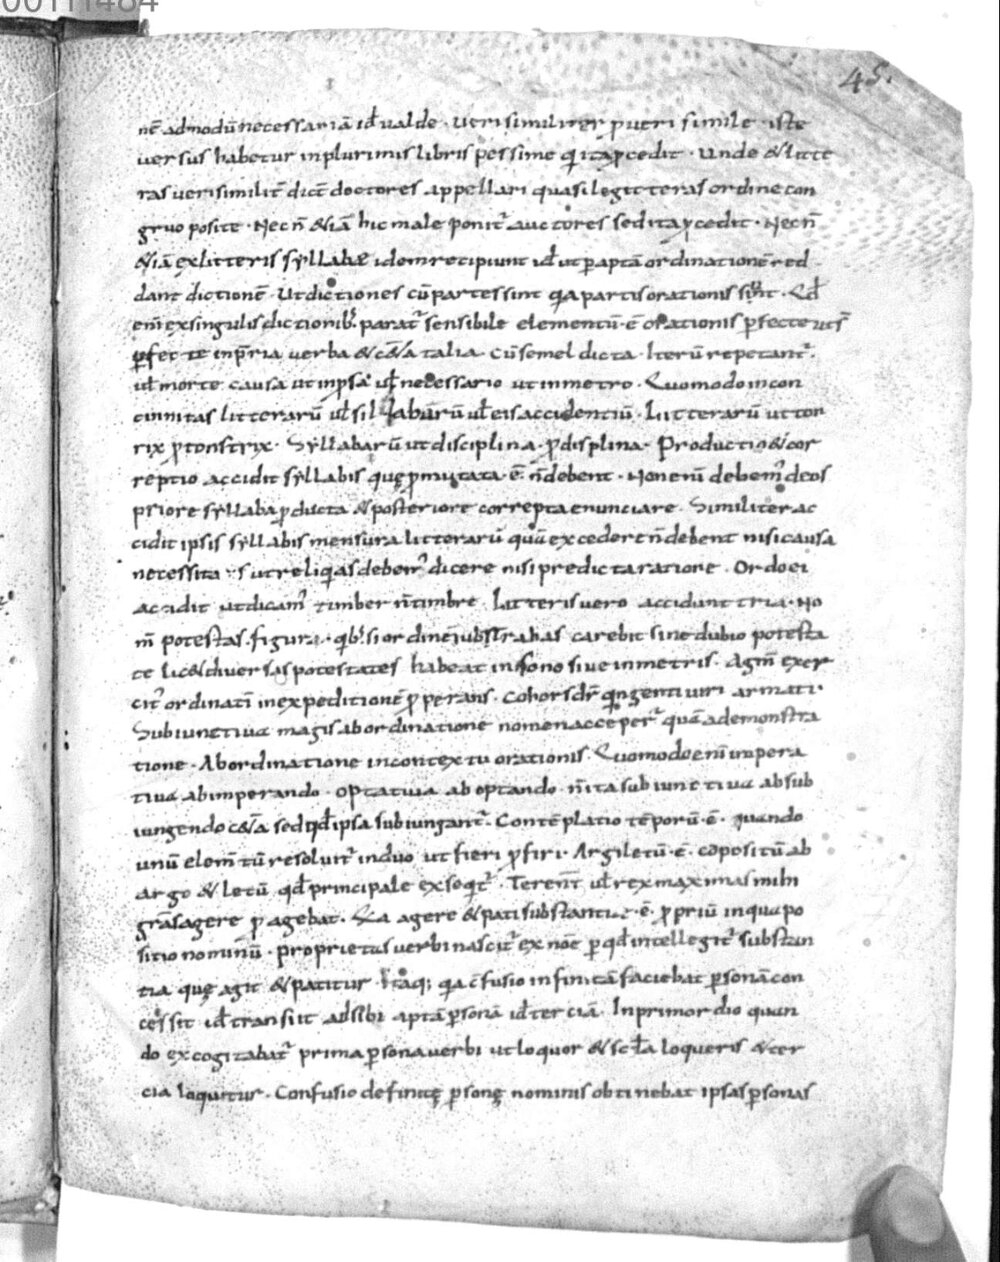 00111484
45.
nē admodū necessariā id̄ ualde · ueri similiter p ueri simile · iste
uersus habetur in plurimis libris pessime qi ita pcedit · unde & litte
ras uerisimilit̄ dict̄ doctores appellari quasi legiteras ordine con
gruo posite · Nec n̄ &iā hic male ponit᷑ auctores sed ita pcedit · Nec n̄
&iā ex litteris syllabę idem recipiunt id̄ ut p aptā ordinationē red
dant dictionē · ut dictiones cū partes sint qa partis orationis sunt · Qd̄
eni ex singulis dictionib; parat᷑ sensibile elementū · ē orationis pfecte ut s̄
pfecte in p̄ria uerba & c&a talia · cū semel dicta · Iterū repetant᷑ ·
ut morte causa ut in ipsa ul necessario ut in metro · Quomodo incon
cinnitas litterarū ul sillabarū ul eis accidentiū · Litterarū ut ton
rix p tonstrix · Syllabarū ut disciplina · p displina · Productio & cor
reptio accidit syllabis quę pmutata ē · n̄ debent · Non eni debem᷒ deos
priore syllaba pducta & posteriore correpta enunciare · Similiter ac
cidit ipsis syllabis mensura litterarū quā excedere n̄ debent nisi causa
necessitatis ut reliqas debem᷒ dicere nisi predicta ratione · Ordo ei
accidit ut dicam᷒ timber n̄ timbre · Litteris uero accidunt tria · No
m̄ potestas · figura · qb; si ordinē subtrahas carebit sine dubio potesta
te lic& diuersas potestates habeat in sono siue in metris · Agm̄ exer
cit᷒ ordinati in expeditionē pperans · Cohors dr̄ qngenti uiri armati ·
Subiunctiua magis ab ordinatione nomen acceper᷑ quā a demonstra
tione · Ab ordinatione in contextu orationis · Quomodo eni impera
tiua ab imperando · optatiua ab optando · n̄ ita subiunctiua ab sub
iungendo c&a sed qd̄ ipsa subiungant᷑ · Contēplatio tēporū · ē · quando
unū elem̄tū resoluit᷑ in duo ut fieri p firi · Argiletū · ē · cōpositū ab
Argo & letū qd̄ principale exseqt᷑ · Terent̄ ul rex maximas mihi
gr̄as agere p agebat · Qa agere & pati substantię · ē · ppriū in qua po
sitio nominū · proprietas uerbi nascit᷑ ex noīe p qd̄ intellegit᷑ substan
tia quę agit & patitur Itaq; qa c̄fusio infinitā faciebat psonā con
cessit id̄ transiit ad sibi aptā psonā id̄ terciā · In primordio quan
do excogitabat᷑ prima psona uerbi ut loquor & scd̄a loqueris & ter
cia loquitur · Confusio definitę psonę nominis obtinebat ipsas psonas